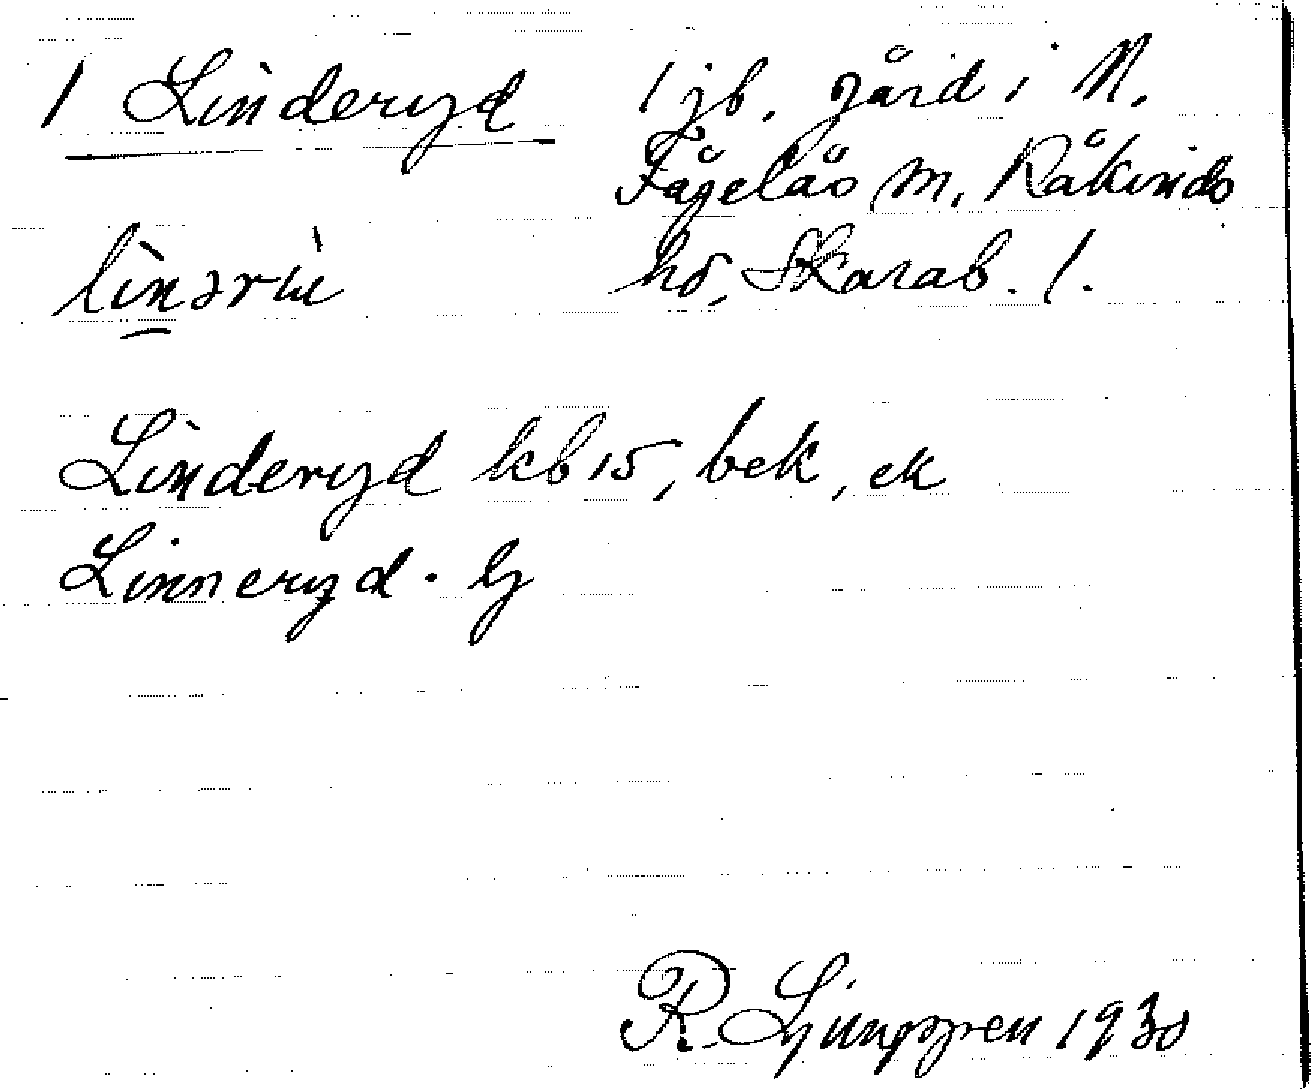 1 Linderyd
1 jb. gård i N.
Fågelås sn, Kåkinds
hd, Skarab. l.
lìnərù
Linderyd kb 15, bek, ek
Linneryd. G
R. Ljunggren 1930